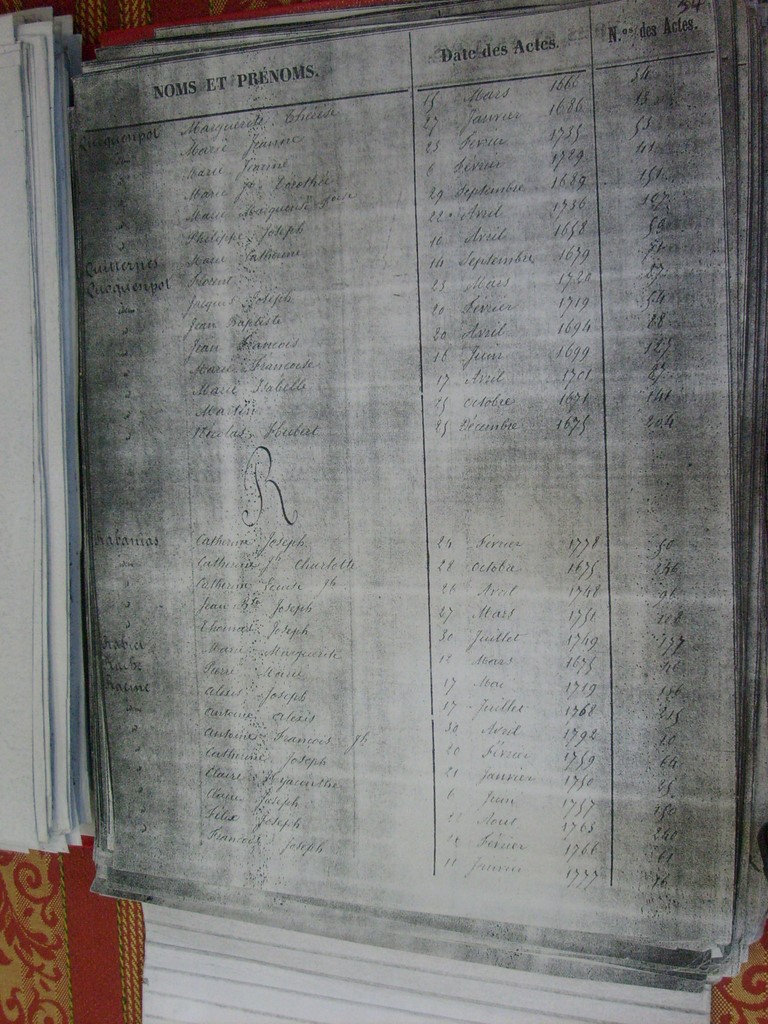 34
NOMS ET PRÉNOMS. Date des Actes. N.os des Actes.
Cucquenpot Marguerite Thérèse 15 Mars 1666 34
" Marie Jeanne 27 Janvier 1686 13
" Marie Jeanne 23 Fevrier 1735 53
" Marie Jh Dorothée 6 Février 1729 41
" Marie Marguerite 29 Septembre 1689 151
" Philippe Joseph 22 Avril 1736 127
" Marie Catherine 16 Avril 1658
Quillernes Florent 14 Septembre 1679
Cucquenpot Jacques Joseph 23 Mars 1720
" Jean Baptiste 20 Février 1719 54
" Jean François 20 Avril 1694 88
" Marie Françoise 16 Juin 1699 125
" Marie Isabelle 17 Avril 1701
" Martin 25 Octobre 1671 141
" Nicolas Hubert 25 Décembre 1675 204
R
Rabanias Catherine Joseph 24 Février 1778 50
" Catherine Jh Charlotte 28 Octobre 1675 246
" Catherine Louise Jh 26 Avril 1748 96
" Jean Bte Joseph 27 Mars 1751 108
" Thomas Joseph 30 Juillet 1749 177
Marie Marguerite 12 Mars 1675
Rache Pierre Marie 17 Mai 1719 116
Racine Alexis Joseph 17 Juillet 1768 215
" Antoine Alexis 30 Avril 1792
" Antoine François Jh 20 Février 1759 64
" Catherine Joseph 21 Janvier 1750 25
" Claire Hyacinthe 6 Juin 1757 150
" Claire Joseph Aout 1763 240
" Félix Joseph 12 Février 1766 61
" François Joseph 11 Janvier 1777 16